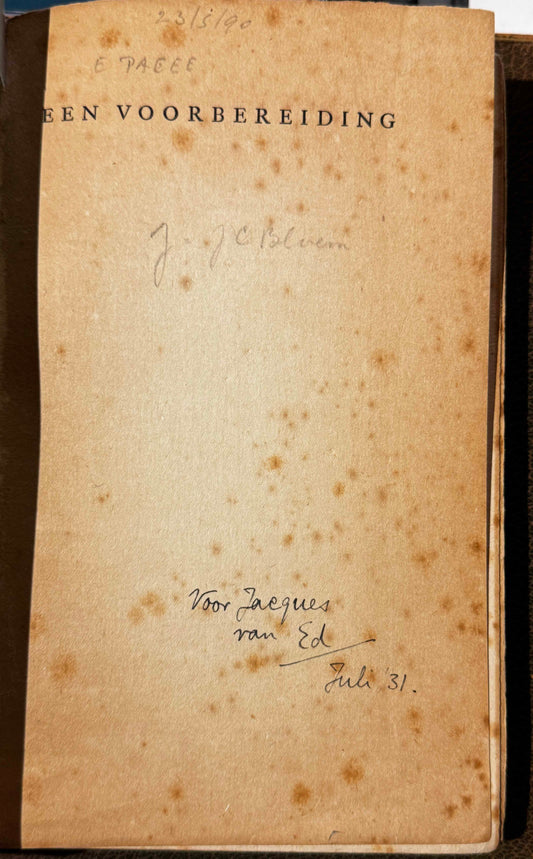 23/5/90
EEN VOORBEREIDING
J. JC Bloem
Voor Jacques
van Ed
Juli '31.